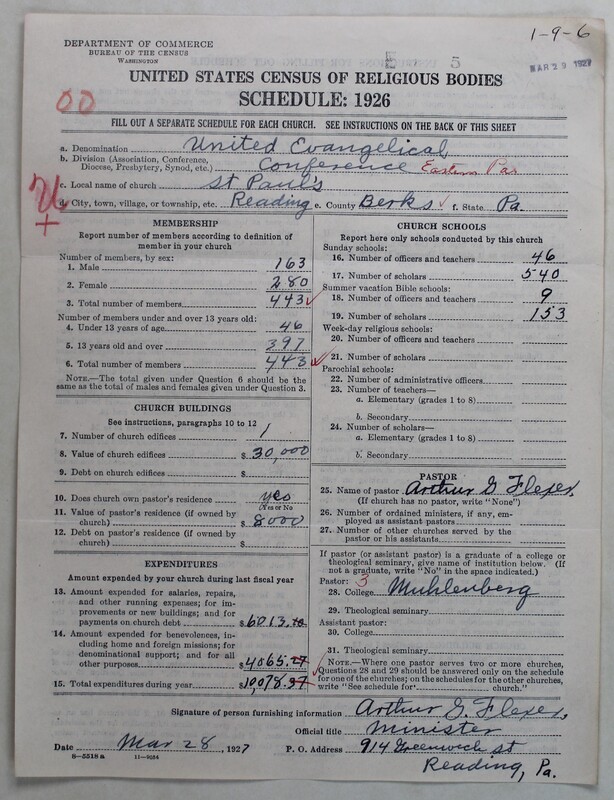 1-9-6
DEPARTMENT OF COMMERCE
BUREAU OF THE CENSUS
WASHINGTON
E 5
MAR 29 1927
UNITED STATES CENSUS OF RELIGIOUS BODIES
SCHEDULE: 1926
00
FILL OUT A SEPARATE SCHEDULE FOR EACH CHURCH. SEE INSTRUCTIONS ON THE BACK OF THIS SHEET
a. Denomination United Evangelical
b. Division (Association, Conference, Diocese, Presbytery, Synod, etc.) Conference Eastern Pa
c. Local name of church St Paul's
d. City, town, village, or township, etc. Reading e. County Berks f. State Pa.
MEMBERSHIP
Report number of members according to definition of member in your church
Number of members, by sex:
1. Male 163
2. Female 280
3. Total number of members 443
Number of members under and over 13 years old:
4. Under 13 years of age 46
5. 13 years old and over 397
6. Total number of members 443
NOTE.—The total given under Question 6 should be the same as the total of males and females given under Question 3.
CHURCH BUILDINGS
See instructions, paragraphs 10 to 12
7. Number of church edifices 1
8. Value of church edifices $ 30,000
9. Debt on church edifices $
10. Does church own pastor's residence yes
(Yes or No
11. Value of pastor's residence (if owned by church) $ 8000
12. Debt on pastor's residence (if owned by church) $
EXPENDITURES
Amount expended by your church during last fiscal year
13. Amount expended for salaries, repairs, and other running expenses; for improvements or new buildings; and for payments on church debt $ 6013.10
14. Amount expended for benevolences, including home and foreign missions; for denominational support; and for all other purposes $ 4065.27
15. Total expenditures during year $ 10078.37
CHURCH SCHOOLS
Report here only schools conducted by this church
Sunday schools:
16. Number of officers and teachers 46
17. Number of scholars 540
Summer vacation Bible schools:
18. Number of officers and teachers 9
19. Number of scholars 153
Week-day religious schools:
20. Number of officers and teachers
21. Number of scholars
Parochial schools:
22. Number of administrative officers
23. Number of teachers—
a. Elementary (grades 1 to 8)
b. Secondary
24. Number of scholars—
a. Elementary (grades 1 to 8)
b. Secondary
PASTOR
25. Name of pastor Arthur G Flexer
(If church has no pastor, write "None")
26. Number of ordained ministers, if any, employed as assistant pastors
27. Number of other churches served by the pastor or his assistants
If pastor (or assistant pastor) is a graduate of a college or theological seminary, give name of institution below. (If not a graduate, write "No" in the space indicated.)
Pastor: 3
28. College Muhlenberg
29. Theological seminary
Assistant pastor:
30. College
31. Theological seminary
NOTE.—Where one pastor serves two or more churches, Questions 28 and 29 should be answered only on the schedule for one of the churches; on the schedules for the other churches, write "See schedule for church."
Signature of person furnishing information Arthur G. Flexer,
Official title Minister
Date Mar 28, 1927 P. O. Address 914 Greenwich st
8—5518 a 11—9054
Reading, Pa.